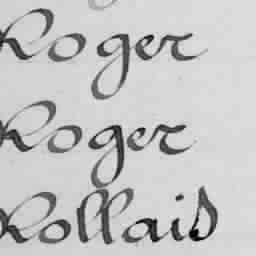 Roger
Roger
Rollais